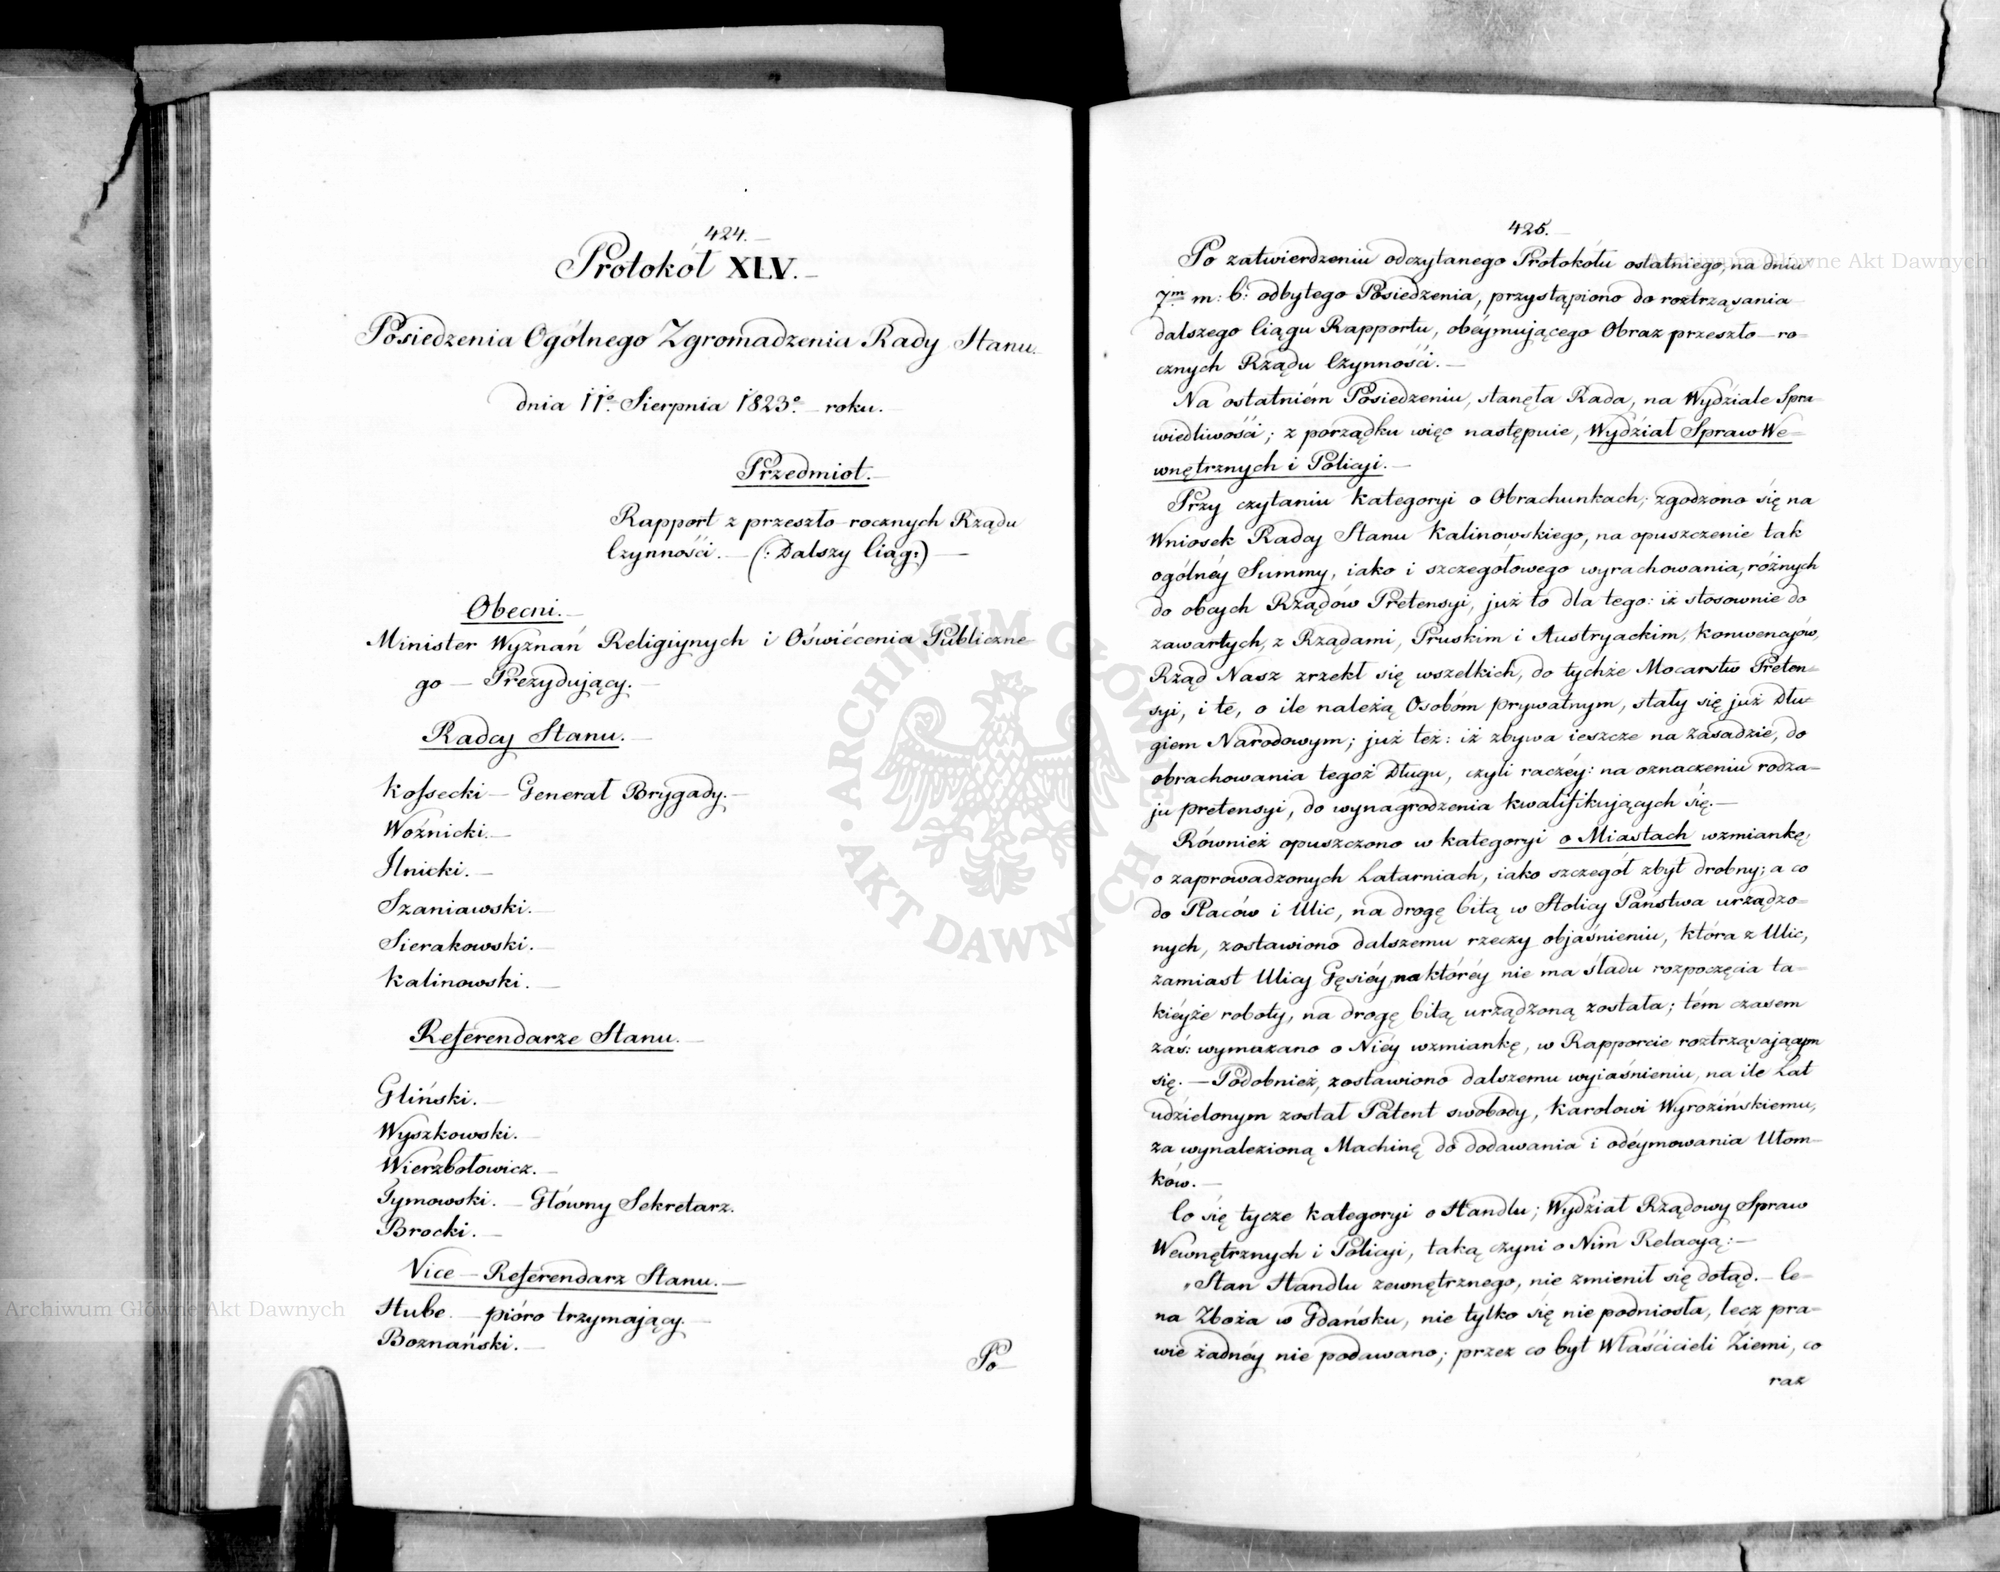 424.
Protokół XLV.
Posiedzenia Ogólnego Zgromadzenia Rady Stanu
dnia 11º Sierpnia 1823º roku.
Przedmiot.
Rapport z przeszło-rocznych Rządu
Czynności. — (: Dalszy Ciąg :) —
Obecni.
Minister Wyznań Religijnych i Oświécenia Publiczne-
go — Prezydujący.
Radcy Stanu.
Kossecki — Generał Brygady.
Woźnicki.
Ilnicki.
Szaniawski.
Sierakowski.
Kalinowski.
Referendarze Stanu.
Gliński.
Wyszkowski.
Wierzbołowicz.
Tymowski. — Główny Sekretarz.
Brocki.
Vice-Referendarz Stanu.
Hube — pióro trzymający.
Boznański.
Po
425.
Po zatwierdzeniu odczytanego Protokółu ostatniego, na dniu
7m m: b: odbytego Posiedzenia, przystąpiono do roztrząsania
dalszego Ciągu Rapportu, obéymującego Obraz przeszło-ro-
cznych Rządu Czynności. —
Na ostatniém Posiedzeniu, stanęła Rada, na Wydziale Spra-
wiedliwości; z porządku więc następuie, Wydział Spraw We-
wnętrznych i Policyi. —
Przy czytaniu Kategoryi o Obrachunkach, zgodzono się na
Wniosek Radcy Stanu Kalinowskiego, na opuszczenie tak
ogólnéy Summy, iako i szczegółowego wyrachowania, różnych
do obcych Rządów Pretensyi, już to dla tego: iż stosownie do
zawartych, z Rządami, Pruskim i Austryackim, Konwencyów,
Rząd Nasz zrzekł się wszelkich, do tychże Mocarstw Preten-
syi, i te, o ile należą Osobóm prywatnym, stały się już Dłu-
giem Narodowym; już też: iż zbywa ieszcze na zasadzie, do
obrachowania tegoż Długu, czyli raczéy: na oznaczeniu rodza-
ju pretensyi, do wynagrodzenia kwalifikujących się. —
Również opuszczono w kategoryi o Miastach wzmiankę,
o zaprowadzonych Latarniach, iako szczegół zbyt drobny; a co
do Placów i Ulic, na drogę bitą w Stolicy Państwa urządzo-
nych, zostawiono dalszemu rzeczy objaśnieniu, która z Ulic,
zamiast Ulicy Gęsiéy, na któréy nie ma śladu rozpoczęcia ta-
kiéyże roboty, na drogę bitą urządzoną została; tém czasem
zaś: wymazano o Niéy wzmiankę, w Rapporcie roztrząsającym
się. — Podobnież, zostawiono dalszemu wyiaśnieniu, na ile Lat
udzielonym został Patent swobody, Karolowi Wyrozińskiemu,
za wynalezioną Machinę do dodawania i odéymowania Ułom-
ków. —
Co się tycze kategoryi o Handlu; Wydział Rządowy Spraw
Wewnętrznych i Policyi, taką czyni o Nim Relacyą: —
„Stan Handlu zewnętrznego, nie zmienił się dotąd. — Ce-
na Zboża w Gdańsku, nie tylko się nie podniosła, lecz pra-
wie żadnéy nie podawano; przez co byt Właścicieli Ziemi, co
raz
Archiwum Główne Akt Dawnych
Archiwum Główne Akt Dawnych
ARCHIWUM GŁÓWNE AKT DAWNYCH